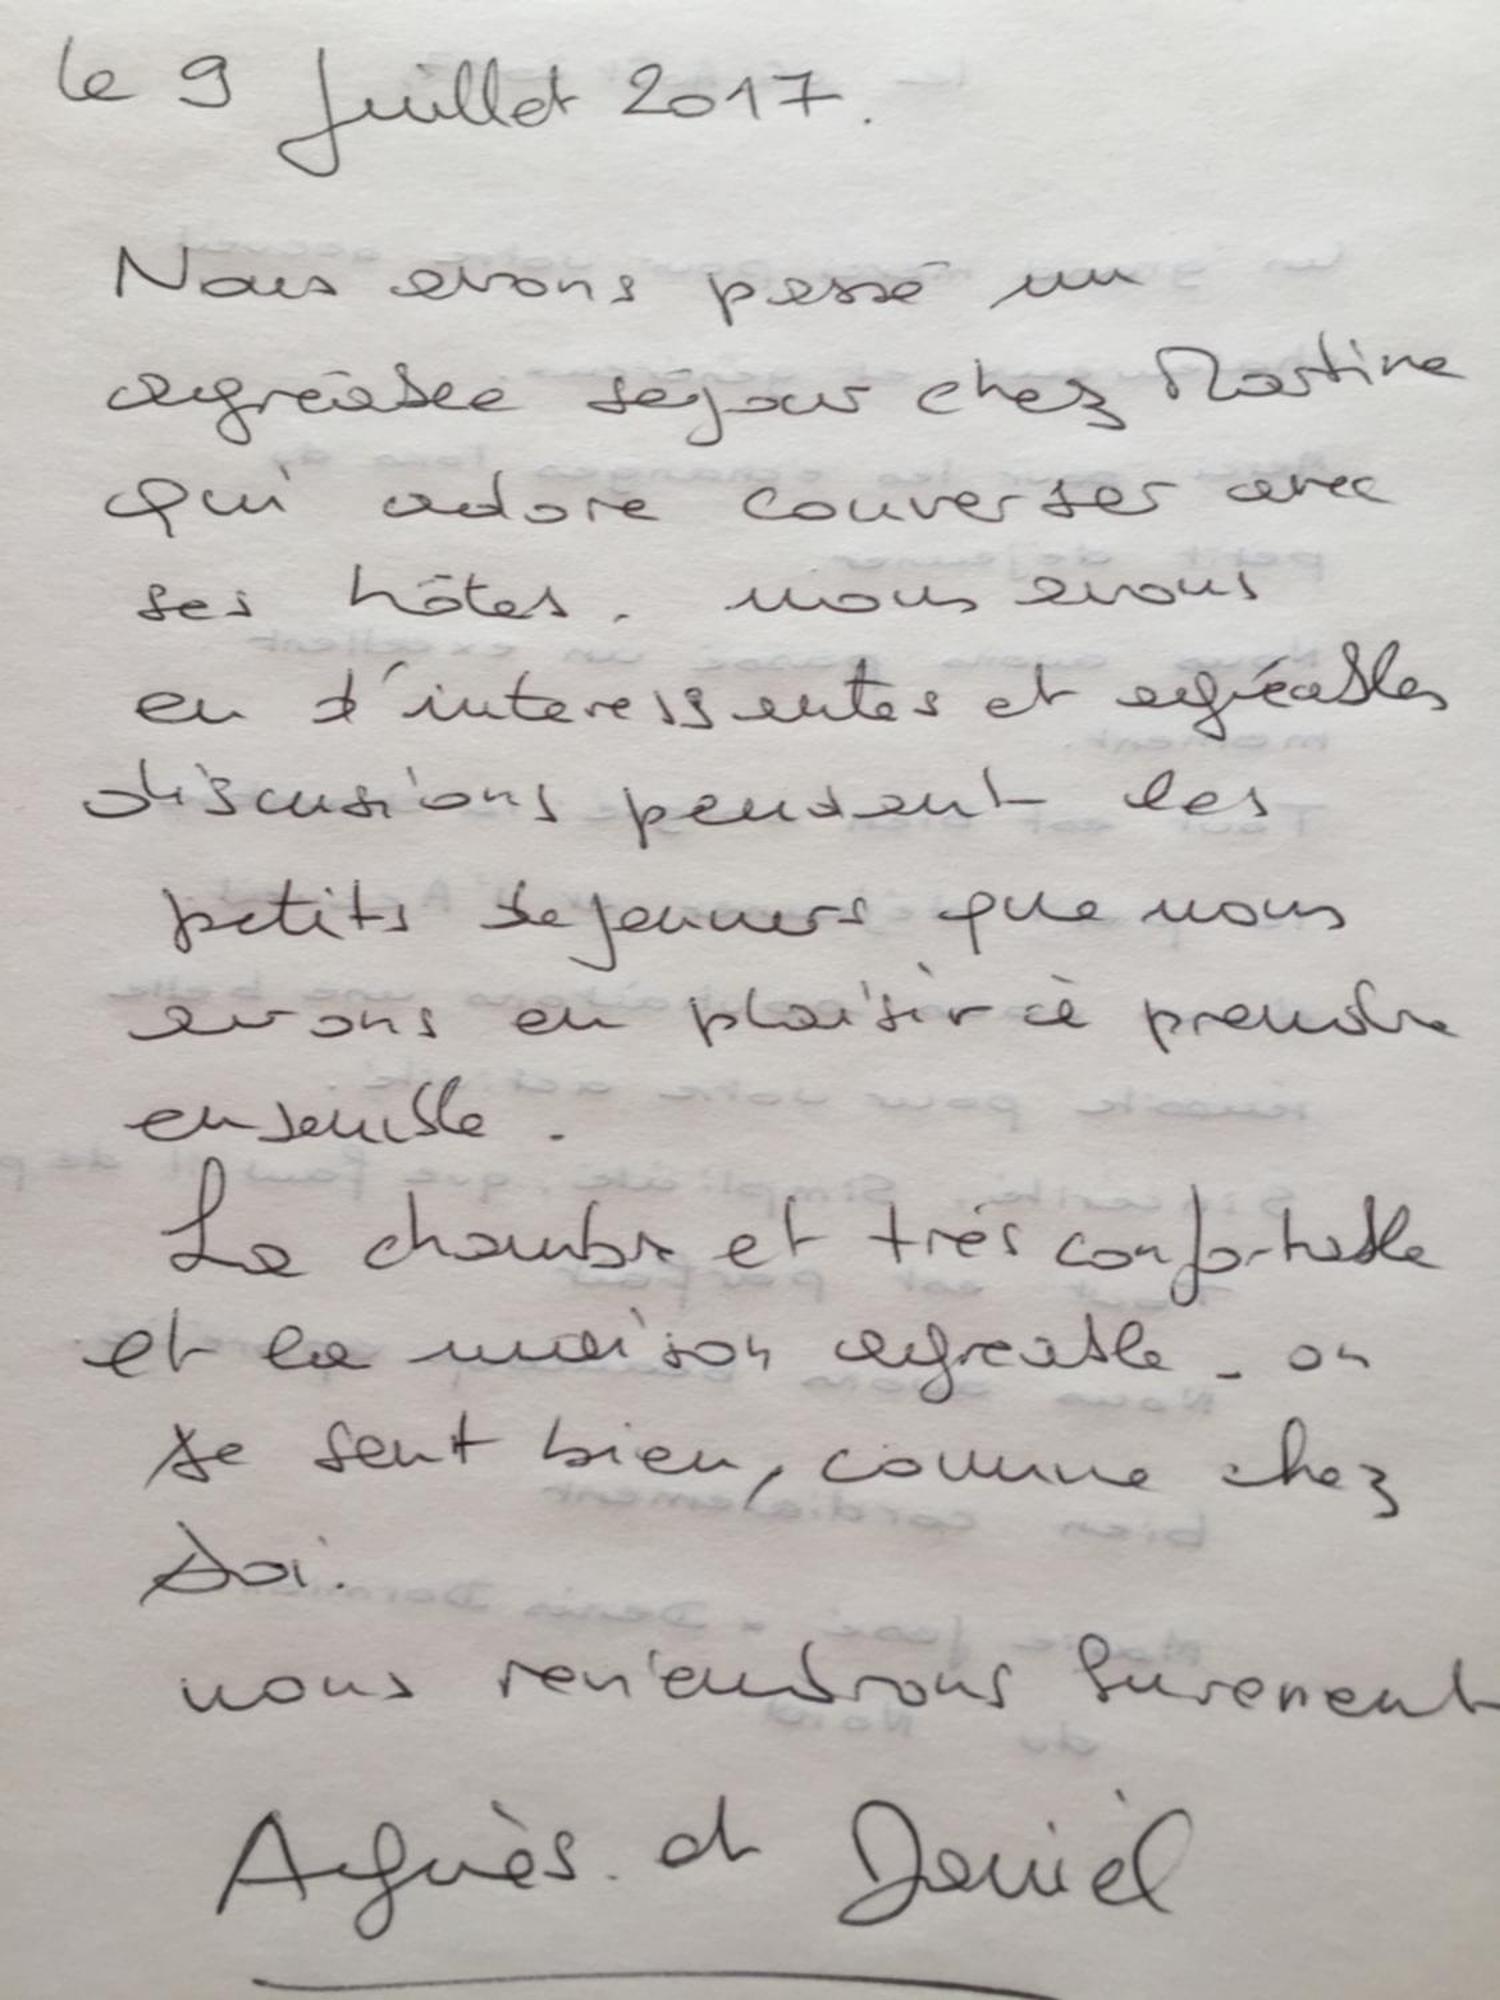 le 9 Juillet 2017.
Nous avons passé un
agréable séjour chez Martine
qui adore converser avec
ses hôtes. nous avons
eu d'interessantes et agréables
discusions pendant les
petits dejeuners que nous
avons eu plaisir à prendre
ensemble.
La chambre et très confortable
et la maison agreable - on
se sent bien, comme chez
soi.
nous reviendrons surement
Agnès et Daniel